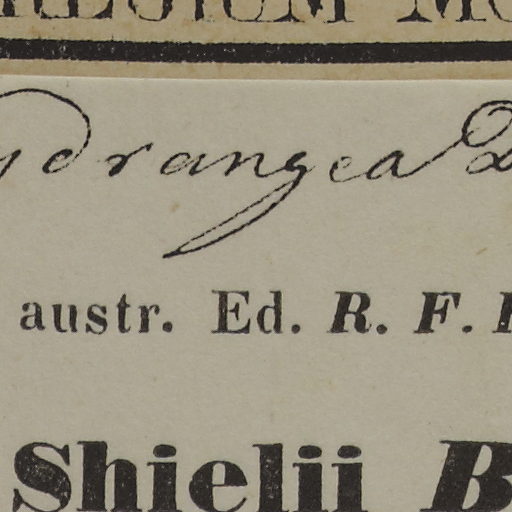 ydrangea
austr. Ed. R. F.
Shielii B